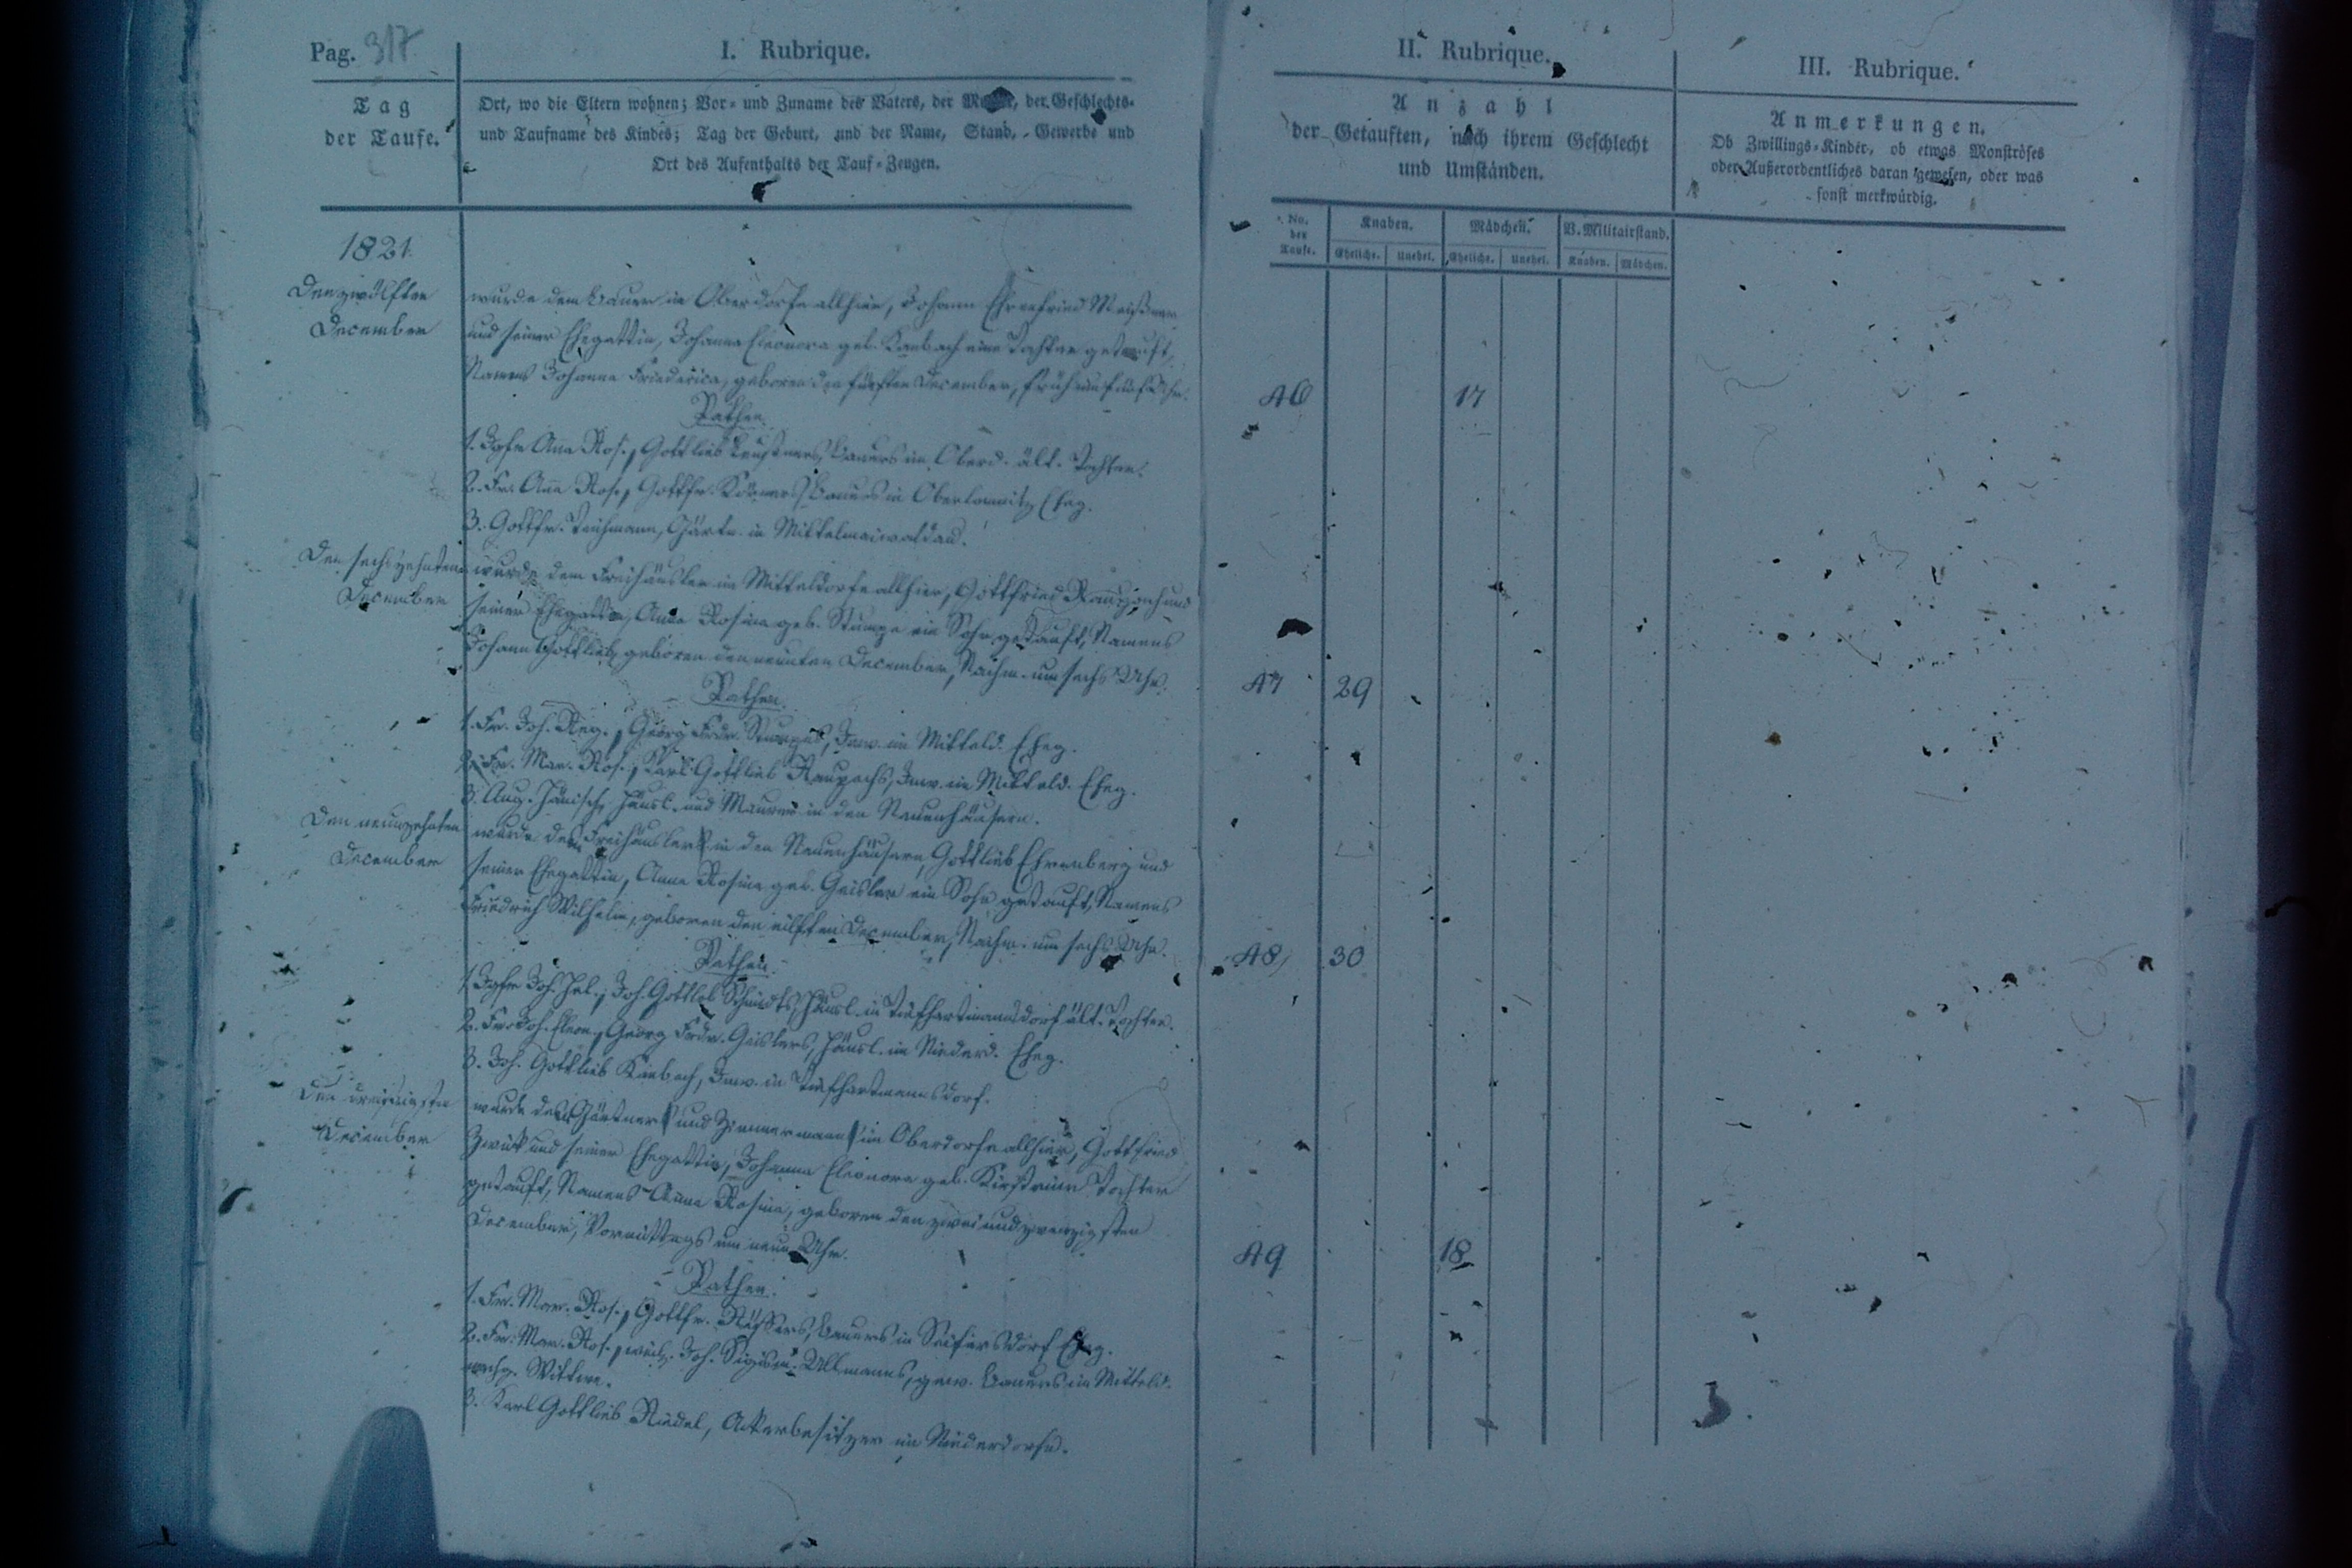 Pag. 317
I. Rubrique.
Tag
der Taufe.
Ort, wo die Eltern wohnen; Vor- und Zuname des Vaters, der Mutter, der Geschlechts-
und Taufname des Kindes; Tag der Geburt, und der Name, Stand, Gewerbe und
Ort des Aufenthalts der Tauf-Zeugen.
1821.
Den zwölften
December
wurde dem Bauer in Oberdorfe allhier, Johann Ehrenfried Meißner
und seiner Ehegattin, Johanna Eleonora geb. Kambach eine Tochter getauft,
Namens Johanne Friederica, geboren den fünften December, früh um fünf Uhr.
Pathen.
1. Jgfr Ana Ros., Gottlieb Bauers im Oberd. ält. Tochter.
2. Fr. Aña Ros., Gottfr. Körners, Bauers in Eheg.
3. Gottfr. Teichmann, Gärtn. in Mittelmaiwaldau.
Den sechszehnten
December
wurde dem Freihäusler im Mitteldorfe allhier, Gottfried Raupach und
seiner Ehegattin, Anna Rosina geb. Stumpe ein Sohn getauft, Namens
Johann Gottlieb, geboren den neunten December, Nachm. um sechs Uhr.
Pathen.
1. Fr. Joh. Reg., Georg Frdr. Stumpes, Inw. im Mitteld. Eheg.
2. Fr. Mar. Ros., Karl Gottlieb Raupachs, Inw. im Mitteld. Eheg.
3. Aug. Jänisch, Häusl. und Maurer in den Neuenhäusern.
Den neunzehnten
December
wurde dem Freihäusler in den Neuenhäusern, Gottlieb Ehrenberg und
seiner Ehegattin, Anna Rosina geb. Geisler ein Sohn getauft, Namens
Friedrich Wilhelm, geboren den eilften December, Nachm. um sechs Uhr.
Pathen.
1. Jgfr Joh. Hel., Joh. Gottlob Schmidts, Häusl. in Tiefhartmannsdorf ält. Tochter.
2. Fr. Joh. Eleon., Georg Frdr. Geislers, Häusl. im Niederd. Eheg.
3. Joh. Gottlieb Kambach, Inw. in Tiefhartmannsdorf.
Den dreißigsten
December
wurde dem Gärtner und Zimmermann im Oberdorfe allhier, Gottfried
und seiner Ehegattin, Johanna Eleonora geb. Tochter
getauft, Namens Anna Rosina, geboren den zwei und zwanzigsten
December, Vormittags um neun Uhr.
Pathen.
1. Fr. Mar. Ros., Gottfr. Bauers in Seifersdorf Eheg.
2. Fr. Mar. Ros., weil. Joh. Sigism. Ullmanns, gew. Bauers im Mitteld.
Wittwe.
3. Karl Gottlieb Riedel, Ackerbesitzer im Niederdorfe.
II. Rubrique.
Anzahl
der Getauften, nach ihrem Geschlecht
und Umständen.
No. der Taufe.
Knaben.
Mädchen.
V. Militairstand.
Eheliche.
Unehel.
Eheliche.
Unehel.
Knaben.
Mädchen.
46 17
47 29
48 30
49 18
III. Rubrique.
Anmerkungen.
Ob Zwillings-Kinder, ob etwas Monströses
oder Außerordentliches daran gewesen, oder was
sonst merkwürdig.